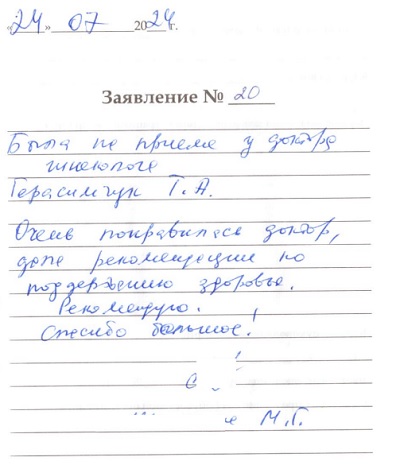 «24» 07 2024 г.
Заявление № 20
Была на приеме у доктора
гинеколога
Герасимчук Т. А.
Очень понравилась доктор,
дала рекомендации по
поддержанию здоровья.
Рекомендую.
Спасибо большое!
М.Г.